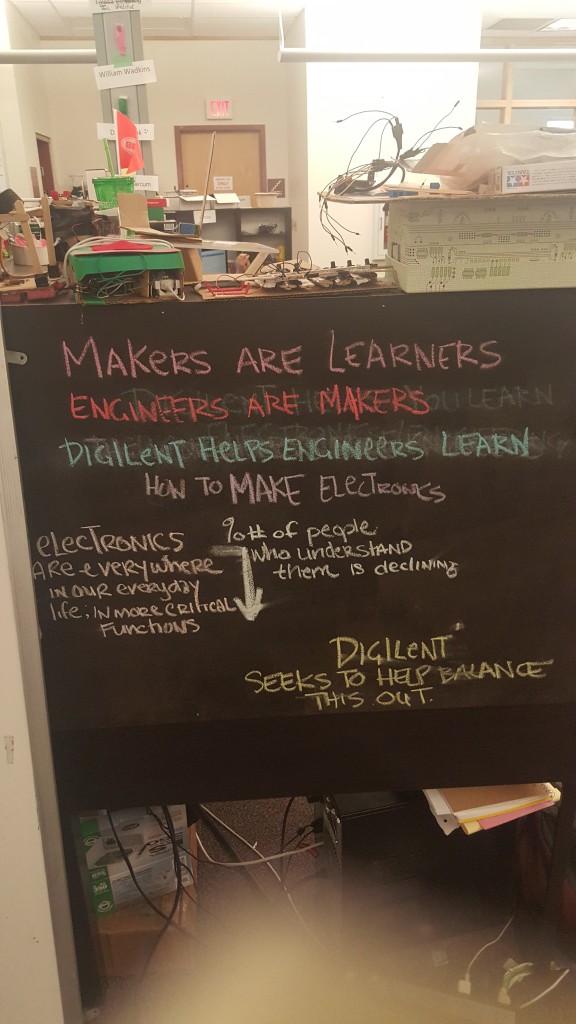 William Wadkins
EXIT
MAKERS ARE LEARNERS
ENGINEERS ARE MAKERS
DIGILENT HELPS ENGINEERS LEARN
HOW TO MAKE ELECTRONICS
ELECTRONICS
ARE everywhere
IN OUR everyday
life, IN MORE CRITICAL
FUNCTIONS
% # of people
WHO UNDERSTAND
them is declining
DIGILENT
SEEKS TO HELP BALANCE
THIS OUT.